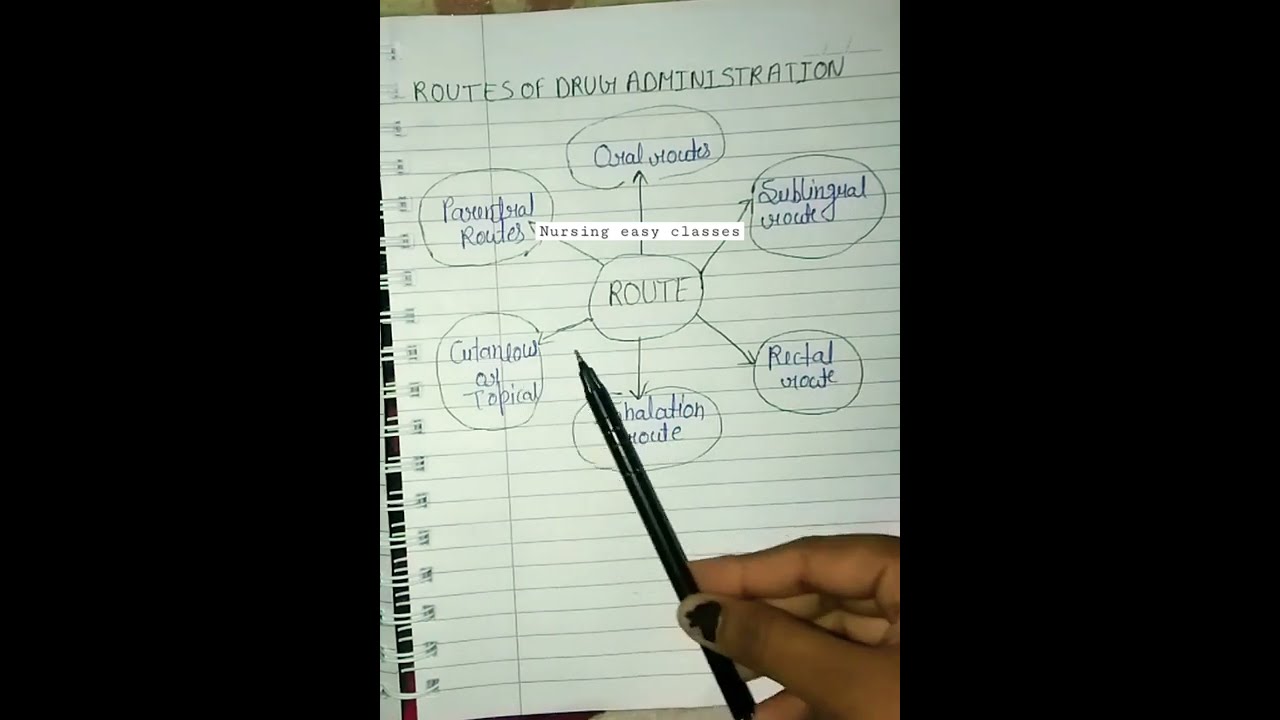 ROUTES OF DRUG ADMINISTRATION
Oral routes
Sublingual
route
Parentral
Routes
Nursing easy classes
ROUTE
Cutaneous
or
Topical
Rectal
route
Inhalation
route